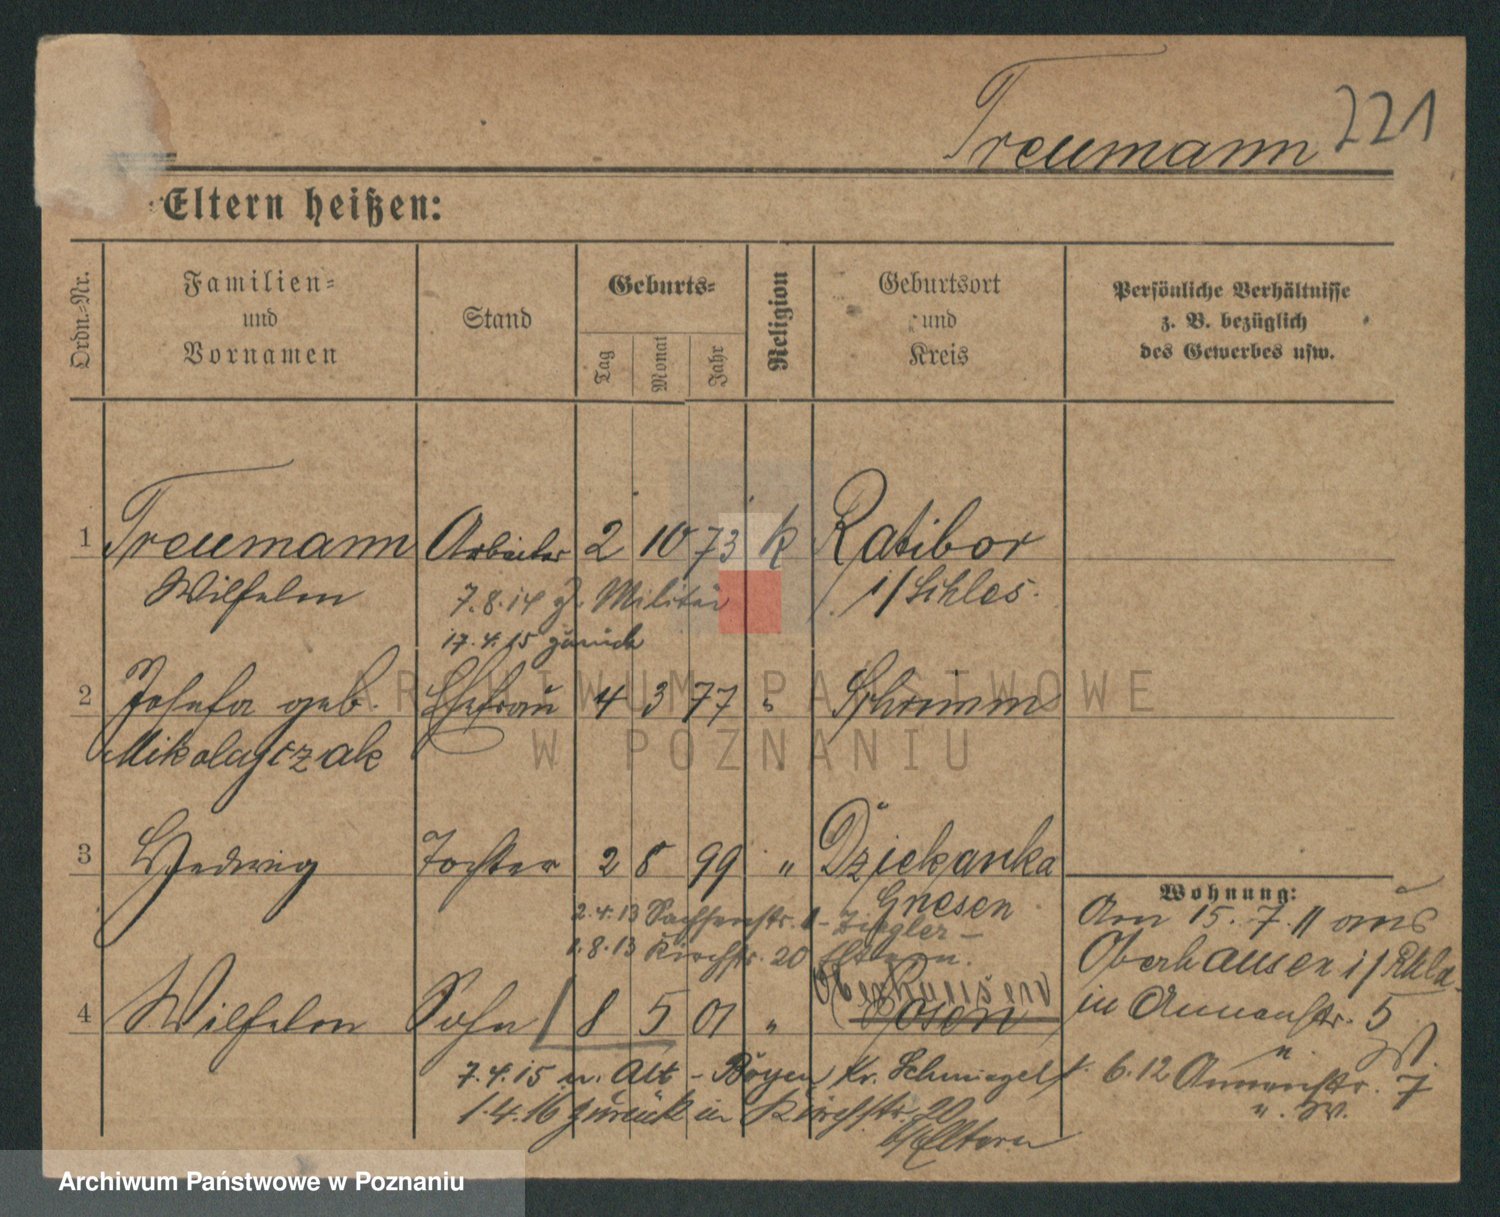 Treumann 221
Eltern heißen:
Ordn.-Nr.
Familien-
und
Vornamen
Stand
Geburts-
Tag
Monat
Jahr
Religion
Geburtsort
und
Kreis
Persönliche Verhältnisse
z. B. bezüglich
des Gewerbes usw.
1 Treumann Arbeiter 2 10 73 k Ratibor
Wilhelm i/Schles.
7.8.14 z. Militär
17.4.15 zurück
2 Josefa geb. Ehefrau 4 3 77 " Schrimm
Mikolajczak
3 Hedwig Tochter 2 8 99 " Dziekanka
Gnesen
2.4.13 Sachsenstr. - Ziegler -
1.8.13 Kirchstr. 20 Eltern.
Oberhausen
4 Wilhelm Sohn 8 5 01 " Posen
7.4.15 n. Alt-Boyen Kr. Schmiegel
1.4.16 zurück in Kirchstr. 20
b/Eltern
Wohnung:
Am 15.7.11 aus
Oberhausen i/
in Annenstr. 5
6.12 Annenstr. 7
ARCHIWUM PAŃSTWOWE
W POZNANIU
Archiwum Państwowe w Poznaniu